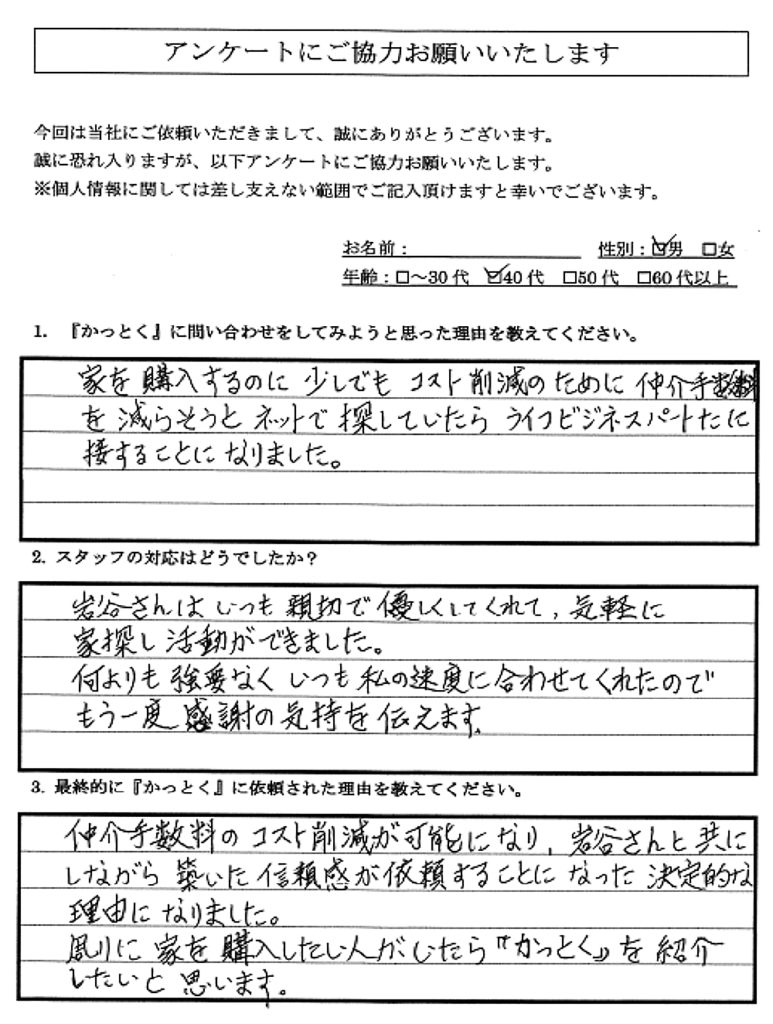 アンケートにご協力お願いいたします
今回は当社にご依頼いただきまして、誠にありがとうございます。
誠に恐れ入りますが、以下アンケートにご協力お願いいたします。
※個人情報に関しては差し支えない範囲でご記入頂けますと幸いでございます。
お名前： 性別：☑男 □女
年齢：□～30代 ☑40代 □50代 □60代以上
1. 『かっとく』に問い合わせをしてみようと思った理由を教えてください。
家を購入するのに少しでもコスト削減のために仲介手数料
を減らそうとネットで探していたらライフビジネスパートたに
接することになりました。
2. スタッフの対応はどうでしたか？
岩谷さんはいつも親切で優しくしてくれて、気軽に
家探し活動ができました。
何よりも強要なくいつも私の速度に合わせてくれたので
もう一度感謝の気持を伝えます。
3. 最終的に『かっとく』に依頼された理由を教えてください。
仲介手数料のコスト削減が可能になり、岩谷さんと共に
しながら築いた信頼感が依頼することになった決定的な
理由になりました。
周りに家を購入したい人がいたら『かっとく』を紹介
したいと思います。